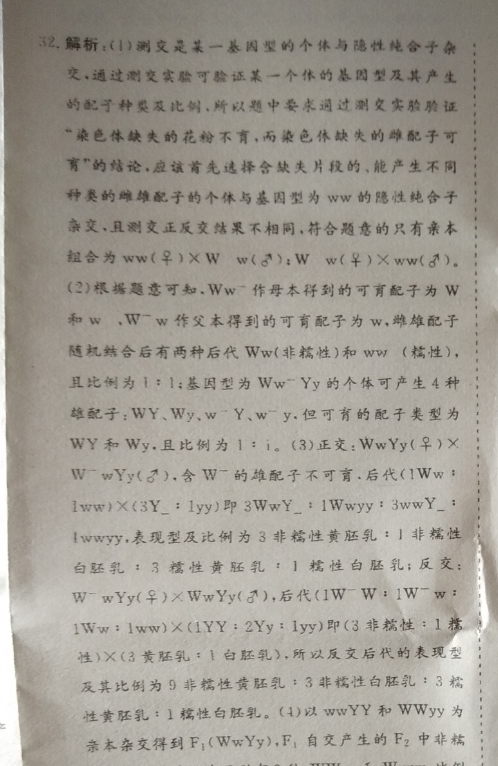 32. 解析:(1)测交是某一基因型的个体与隐性纯合子杂
交,通过测交实验可验证某一个体的基因型及其产生
的配子种类及比例、所以题中要求通过测交实验验证
“染色体缺失的花粉不育,而染色体缺失的雌配子可
育”的结论,应该首先选择含缺失片段的、能产生不同
种类的雌雄配子的个体与基因型为 ww 的隐性纯合子
杂交、且测交正反交结果不相同,符合题意的只有亲本
组合为 ww(♀)×W w(♂);W w(♀)×ww(♂)。
(2)根据题意可知,Ww⁻ 作母本得到的可育配子为 W
和 w ,W⁻w 作父本得到的可育配子为 w,雌雄配子
随机结合后有两种后代 Ww(非糯性)和 ww (糯性),
且比例为 1:1;基因型为 Ww⁻Yy 的个体可产生 4 种
雄配子:WY、Wy、w⁻Y、w⁻y,但可育的配子类型为
WY 和 Wy,且比例为 1:1。(3)正交:WwYy(♀)×
W⁻wYy(♂),含 W⁻ 的雄配子不可育,后代(1Ww:
1ww)×(3Y_:1yy)即 3WwY_:1Wwyy:3wwY_:
1wwyy,表现型及比例为 3 非糯性黄胚乳:1 非糯性
白胚乳:3 糯性黄胚乳:1 糯性白胚乳;反交:
W⁻wYy(♀)×WwYy(♂),后代(1W⁻W:1W⁻w:
1Ww:1ww)×(1YY:2Yy:1yy)即(3 非糯性:1 糯
性)×(3 黄胚乳:1 白胚乳),所以反交后代的表现型
及其比例为 9 非糯性黄胚乳:3 非糯性白胚乳:3 糯
性黄胚乳:1 糯性白胚乳。(4)以 wwYY 和 WWyy 为
亲本杂交得到 F₁(WwYy),F₁ 自交产生的 F₂ 中非糯